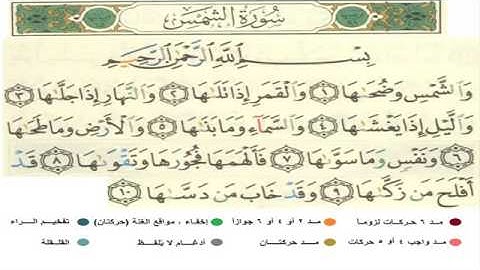 سُورَةُ الشَّمْسِ
بِسْمِ اللَّهِ الرَّحْمَٰنِ الرَّحِيمِ
وَالشَّمْسِ وَضُحَاهَا ١ وَالْقَمَرِ إِذَا تَلَاهَا ٢ وَالنَّهَارِ إِذَا جَلَّاهَا ٣
وَاللَّيْلِ إِذَا يَغْشَاهَا ٤ وَالسَّمَاءِ وَمَا بَنَاهَا ٥ وَالْأَرْضِ وَمَا طَحَاهَا
٦ وَنَفْسٍ وَمَا سَوَّاهَا ٧ فَأَلْهَمَهَا فُجُورَهَا وَتَقْوَاهَا ٨ قَدْ
أَفْلَحَ مَن زَكَّاهَا ٩ وَقَدْ خَابَ مَن دَسَّاهَا ١٠
مد ٦ حركات لزوماً مد ٢ أو ٤ أو ٦ جوازاً إخفاء، ومواقع الغنة (حركتان) تفخيم الراء
مد واجب ٤ أو ٥ حركات مد حركتان أدغام، وما لا يلفظ القلقلة